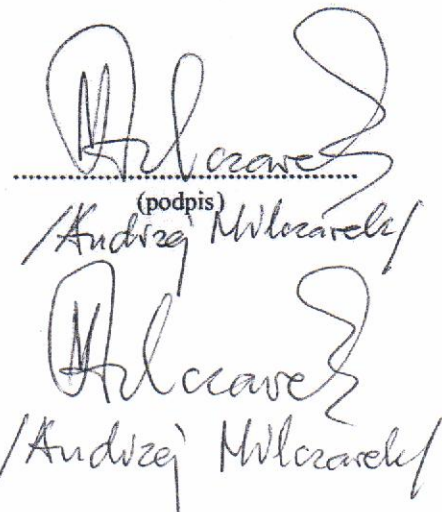 Milczarek
(podpis)
/Andrzej Milczarek/
Milczarek
/Andrzej Milczarek/